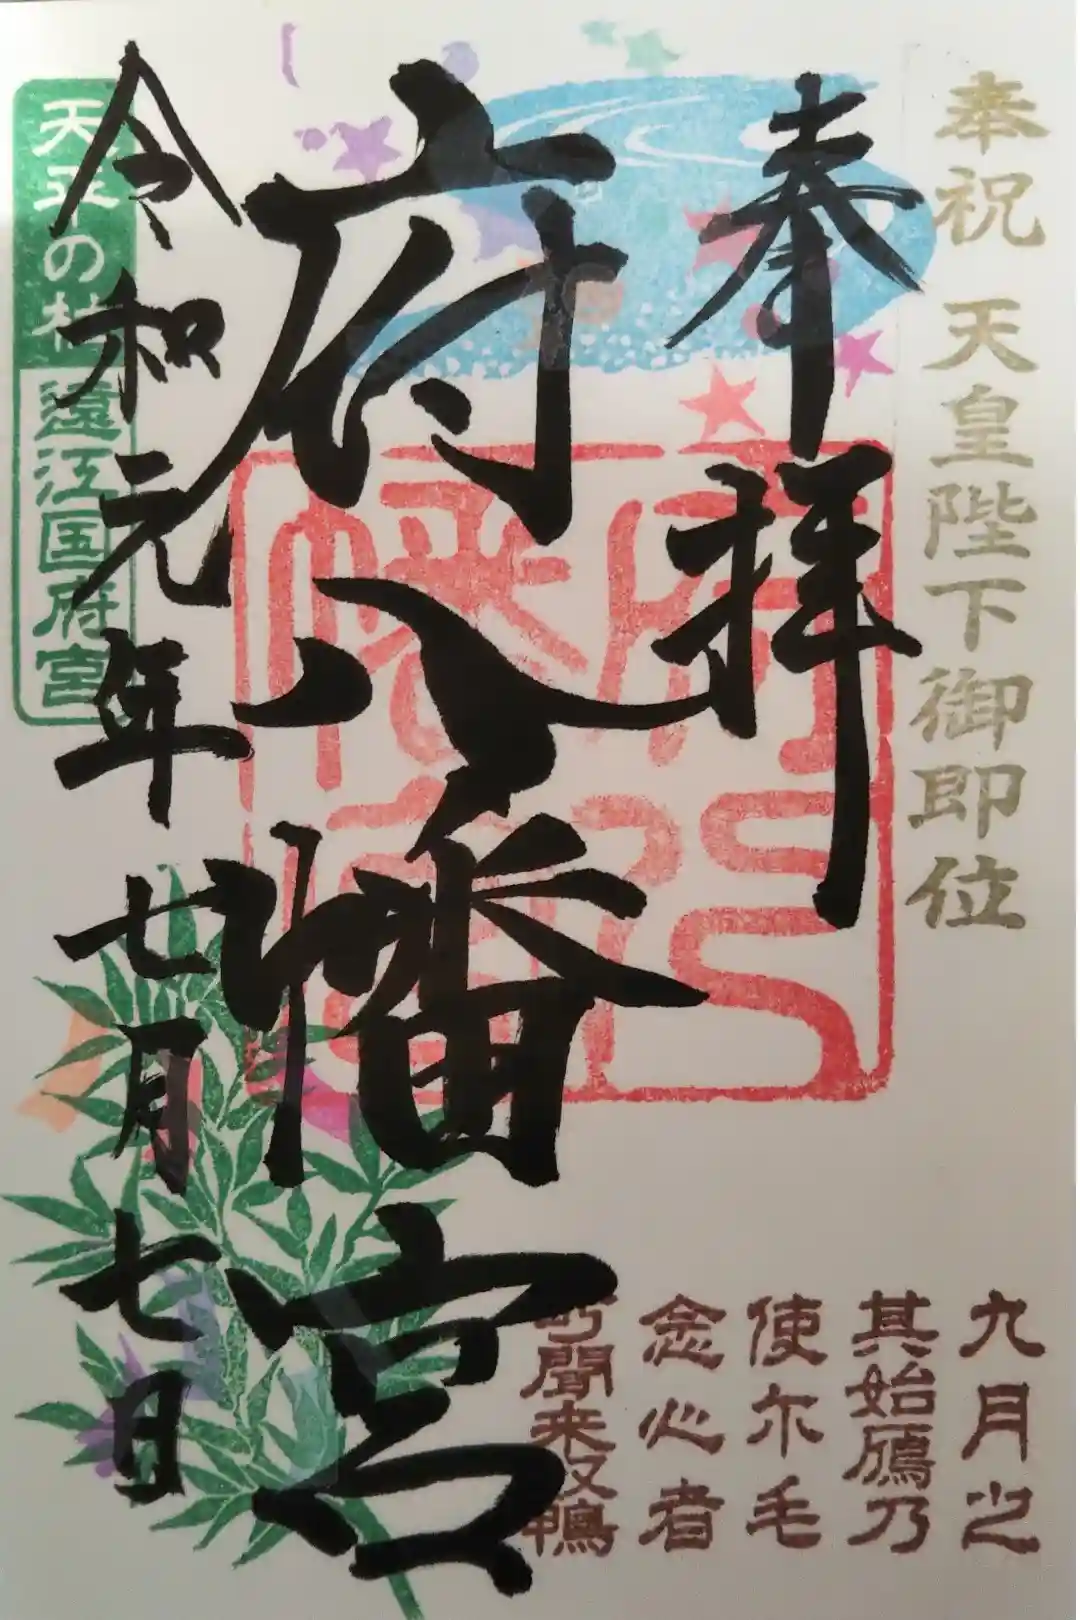 奉祝 天皇陛下御即位
奉拝
府八幡宮
令和元年七月七日
天平の
遠江国府宮
九月之
其始鴈乃
使尓毛
念心者
聞来奴鴨